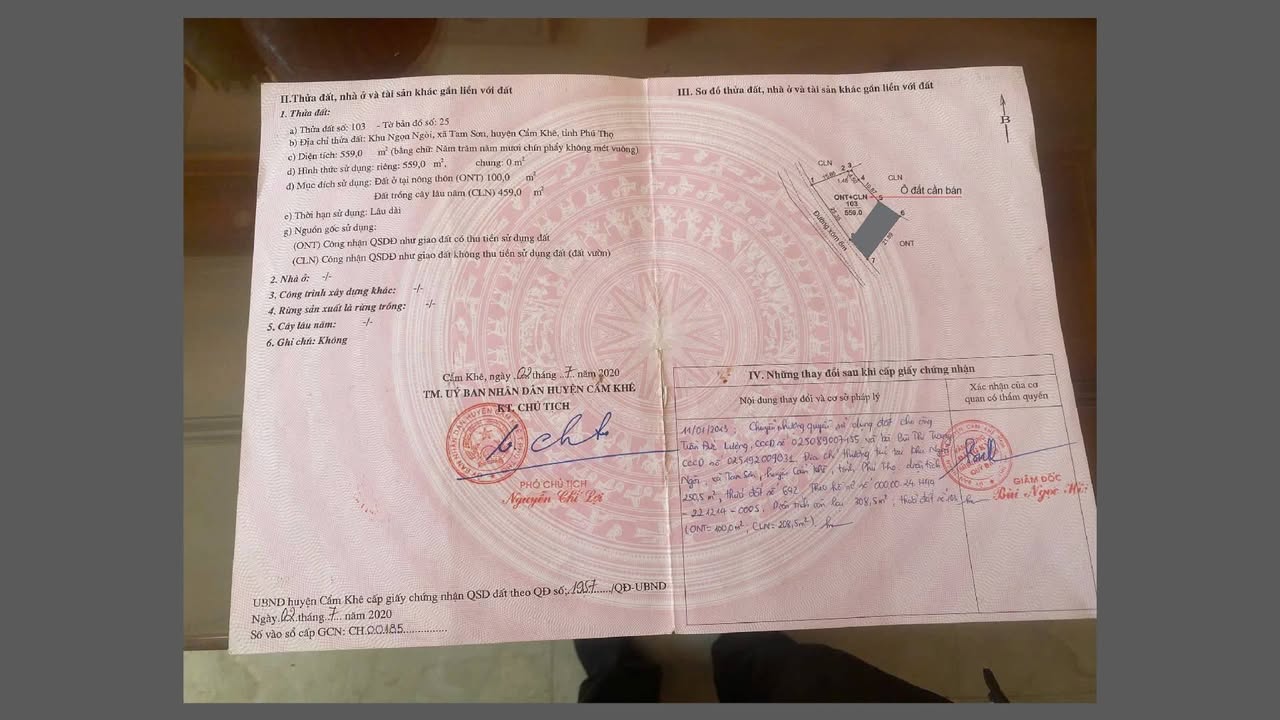 II.Thửa đất, nhà ở và tài sản khác gắn liền với đất
1. Thửa đất:
a) Thửa đất số: 103 - Tờ bản đồ số: 25
b) Địa chỉ thửa đất: Khu Ngọn Ngòi, xã Tam Sơn, huyện Cẩm Khê, tỉnh Phú Thọ
c) Diện tích: 559,0 m² (bằng chữ: Năm trăm năm mươi chín phẩy không mét vuông)
d) Hình thức sử dụng: riêng: 559,0 m², chung: 0 m²
đ) Mục đích sử dụng: Đất ở tại nông thôn (ONT) 100,0 m²
Đất trồng cây lâu năm (CLN) 459,0 m²
e) Thời hạn sử dụng: Lâu dài
g) Nguồn gốc sử dụng:
(ONT) Công nhận QSDĐ như giao đất có thu tiền sử dụng đất
(CLN) Công nhận QSDĐ như giao đất không thu tiền sử dụng đất (đất vườn)
2. Nhà ở: -/-
3. Công trình xây dựng khác: -/-
4. Rừng sản xuất là rừng trồng: -/-
5. Cây lâu năm: -/-
6. Ghi chú: Không
Cẩm Khê, ngày 02 tháng 7 năm 2020
TM. UỶ BAN NHÂN DÂN HUYỆN CẨM KHÊ
KT. CHỦ TỊCH
PHÓ CHỦ TỊCH
Nguyễn Chí Lợi
UBND huyện Cẩm Khê cấp giấy chứng nhận QSD đất theo QĐ số: 1957/QĐ-UBND
Ngày 02 tháng 7 năm 2020
Số vào sổ cấp GCN: CH 00185
III. Sơ đồ thửa đất, nhà ở và tài sản khác gắn liền với đất
B
CLN
1
2
3
4
CLN
Ô đất cần bán
ONT+CLN
5
103
559.0
6
21.98
ONT
7
Đường xóm 6m
IV. Những thay đổi sau khi cấp giấy chứng nhận
Nội dung thay đổi và cơ sở pháp lý
Xác nhận của cơ quan có thẩm quyền
Chuyển nhượng quyền sử dụng đất cho ông
Đức Lương, CCCD số 025089007155 và bà Bùi Thị
CCCD số 025192009031. Địa chỉ thường trú tại khu Ngọn
Ngòi, xã Tam Sơn, huyện Cẩm Khê, tỉnh Phú Thọ diện tích
250,5 m², thửa đất số 642. Theo hồ sơ số 000.00.24.H
- 221214 - 0005. Diện tích còn lại 308,5m², thửa đất số 103
(ONT= 100,0m², CLN= 208,5m²).
GIÁM ĐỐC
Bùi Ngọc